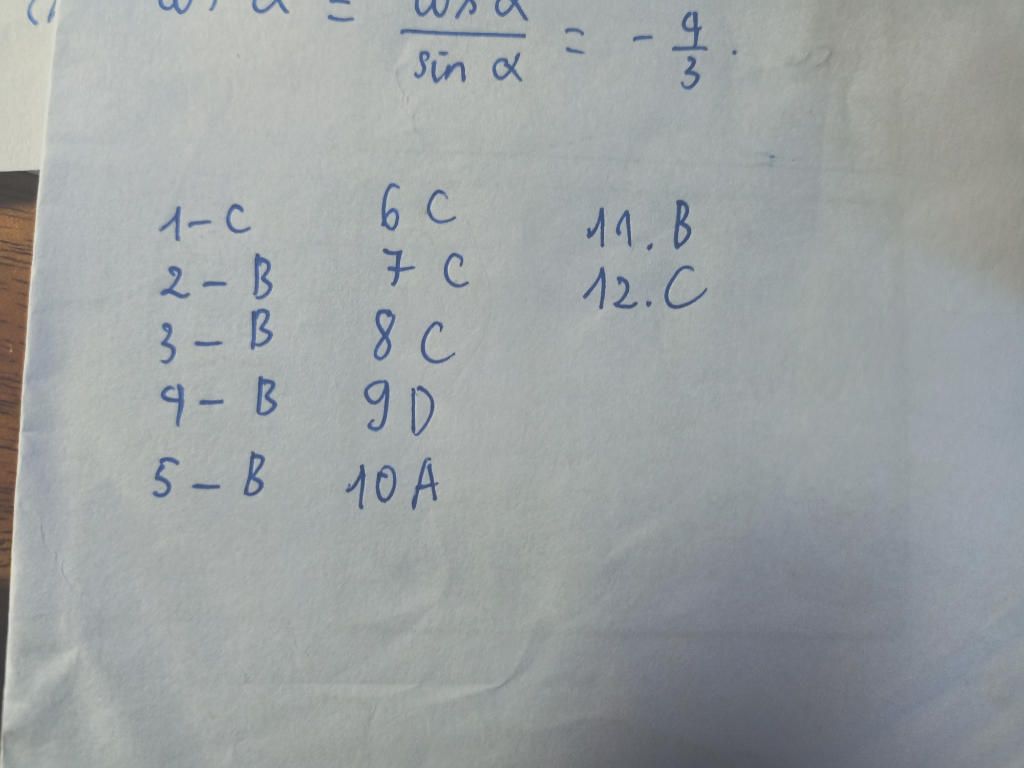 α = cos α / sin α = - 4/3 .
1 - C
2 - B
3 - B
4 - B
5 - B
6 C
7 C
8 C
9 D
10 A
11. B
12. C